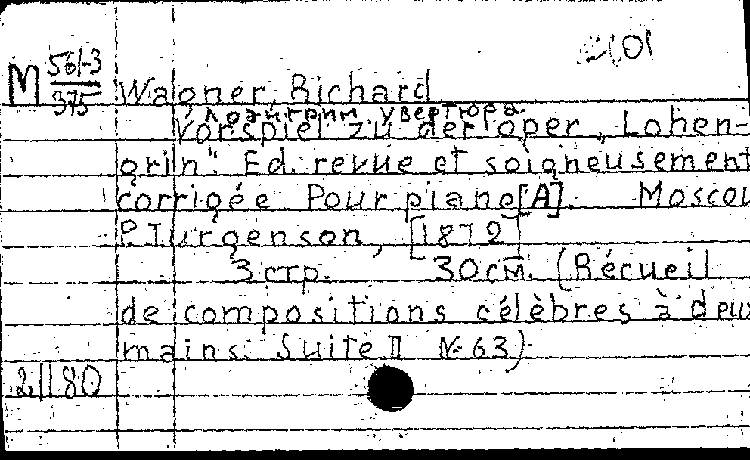 M 561-3
375
Wagner, Richard
Лоэнгрин. Увертюра.
Vorspiel zu der Oper „Lohen-
grin". Ed. revue et soigneusement
corrigée Pour piano [А]. Moscou
P. Jurgenson, [1872]
3 стр. 30 см. (Récueil
de compositions célèbres à deux
mains. Suite II № 63)
21180